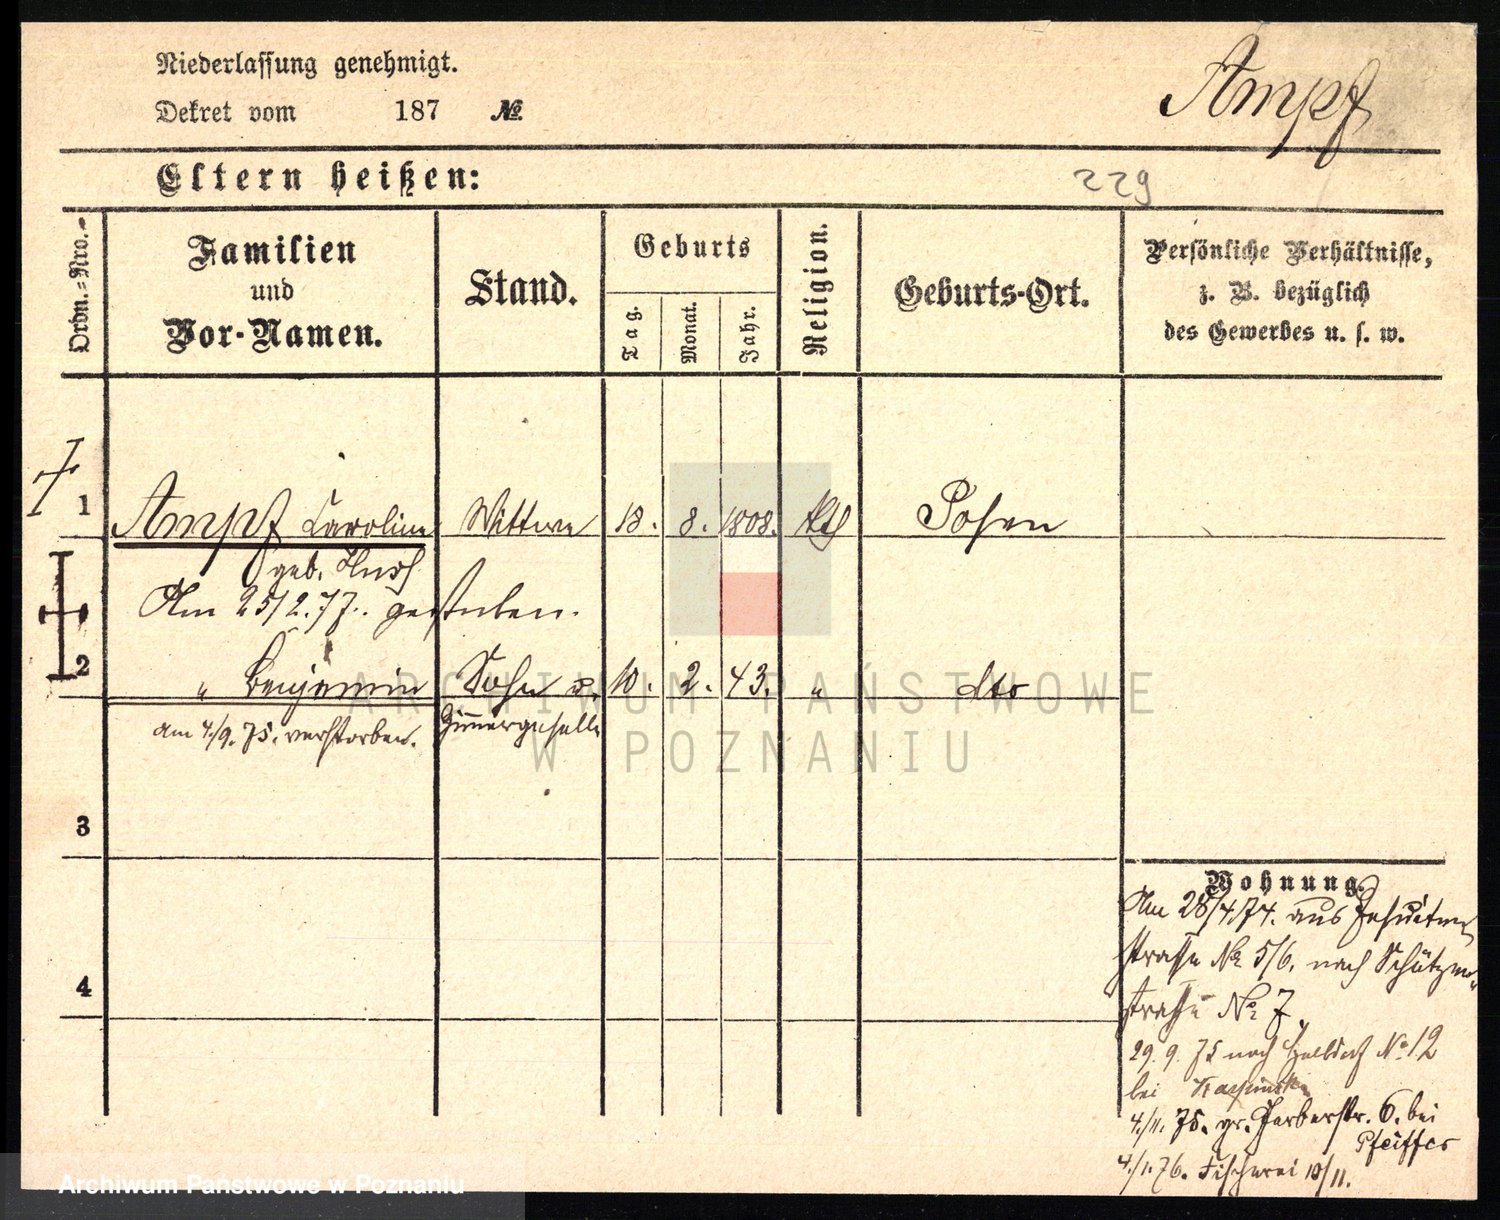 Niederlassung genehmigt.
Ampf
Dekret vom 187 №
Eltern heißen:
229
Ordn.-Nro.
Familien
und
Vor-Namen.
Stand.
Geburts
Tag.
Monat.
Jahr.
Religion.
Geburts-Ort.
Persönliche Verhältnisse,
z. B. bezüglich
des Gewerbes u. s. w.
1 Ampf Caroline Wittwe 18. 8. 1808. kth Posen
geb.
Am 25/2.77. gestorben.
2 " Benjamin Sohn u. 10. 2. 43. " dto
am 4/9. 75. verstorben. Zimmergeselle
3
4
Wohnung.
Am 28/4.74. aus Jesuiten
strasse № 5/6. nach Schützen-
strasse № 7.
29. 9. 75 nach Halbdorf № 12
bei
4./11. 75. gr. Gerberstr. 6. bei
Pfeiffer
4./1. 76. Fischerei 10/11.
ARCHIWUM PAŃSTWOWE
W POZNANIU
Archiwum Państwowe w Poznaniu